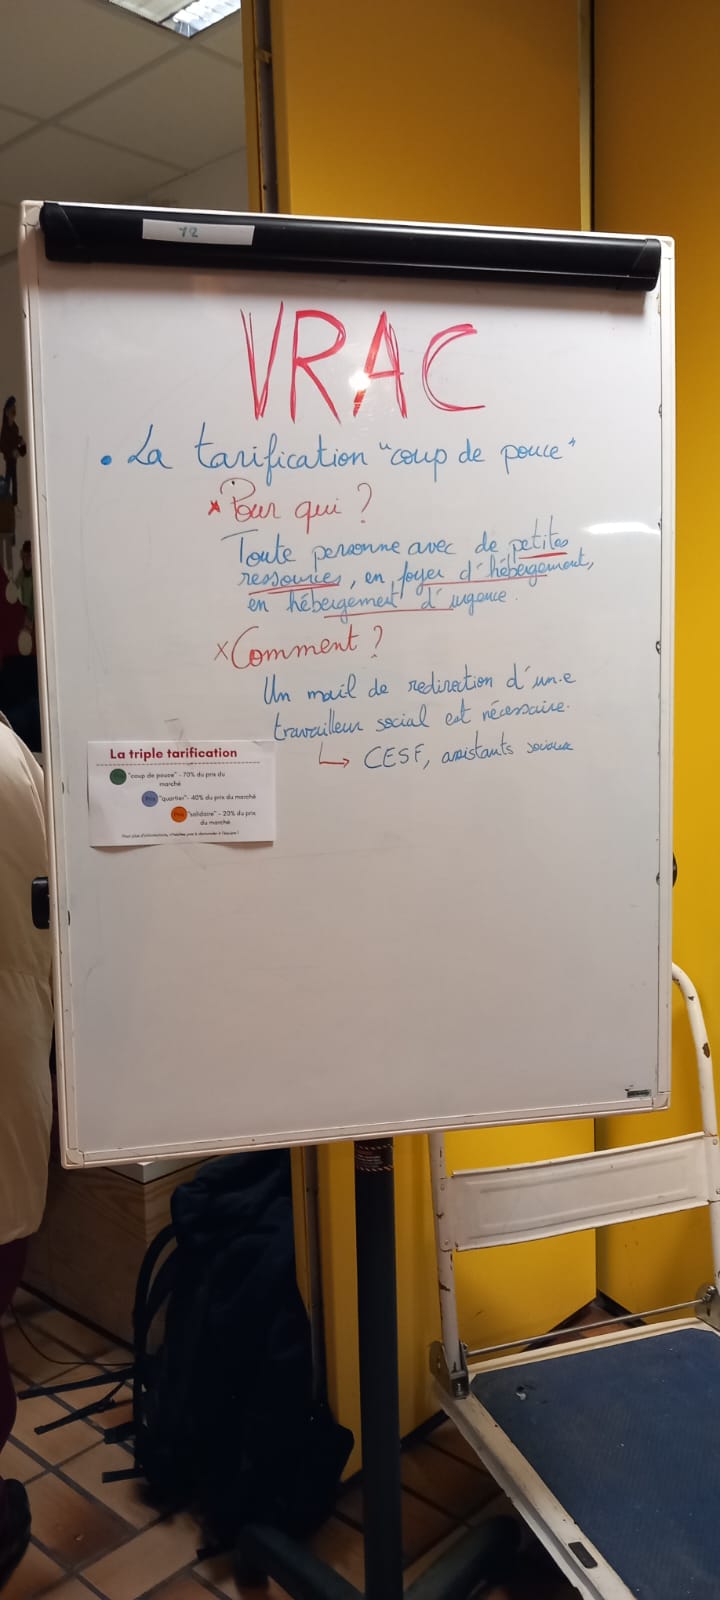 72
VRAC
• La tarification "coup de pouce"
× Pour qui ?
Toute personne avec de petites
ressources, en foyer d'hébergement,
en hébergement d'urgence.
× Comment ?
Un mail de redirection d'un·e
travailleur social est nécessaire.
↳ CESF, assistants sociaux
La triple tarification
Prix "coup de pouce" - 70% du prix du
marché
Prix "quartier" - 40% du prix du marché
Prix "solidaire" - 20% du prix
du marché
Pour plus d'informations, n'hésitez pas à demander à l'équipe !